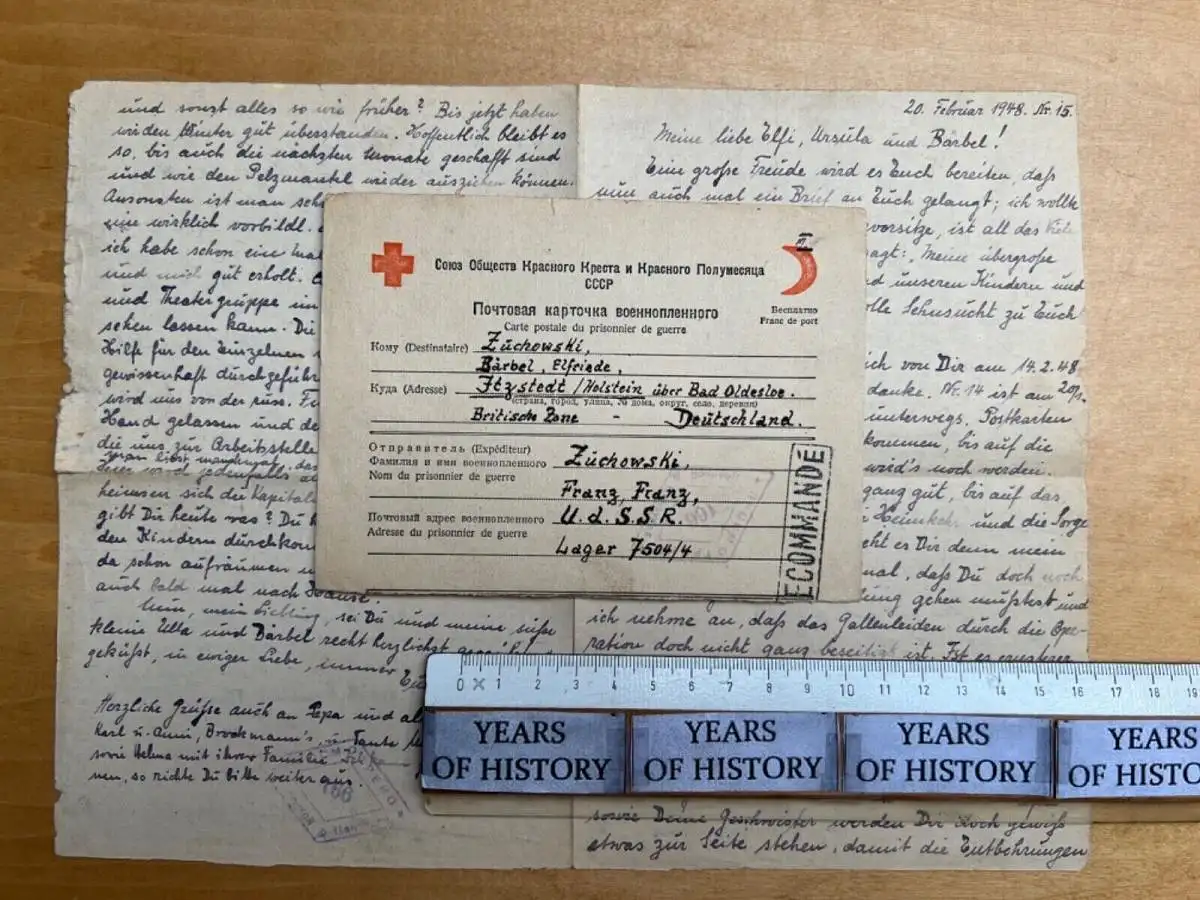 und sonst alles so wie früher? Bis jetzt haben
wir den Winter gut überstanden. Hoffentlich bleibt es
so, bis auch die nächsten Monate geschafft sind
und wir den Pelzmantel wieder ausziehen können.
Ansonsten ist man
eine wirklich vorbildl.
ich habe schon eine
und mich gut erholt.
und Theatergruppe im
sehen lassen kann. Du
Hilfe für den Einzelnen
gewissenhaft durchgeführ
wird uns von der russ. F
Hand gelassen und de
die uns zur Arbeitsstelle
heimsen sich die Kapital
gibt Dir heute was? Du
den Kindern durchkom
da schon aufräumen
auch bald mal nach Hause.
Nun, mein Liebling, sei Du und meine süße
kleine Ulla und Bärbel recht herzlichst
geküßt, in ewiger Liebe, immer
Herzliche Grüße auch an Papa und
Karl u. Anni, Brockmann's Tante
sowie Helma mit ihrer Familie
nen, so richte Du bitte weiter aus.
20. Februar 1948. Nr. 15.
Meine liebe Elfi, Ursula und Bärbel!
Eine große Freude wird es Euch bereiten, daß
nun auch mal ein Brief an Euch gelangt; ich wollte
vorsitze, ist all das Viele
agt: Meine übergroße
d unseren Kindern und
olle Sehnsucht zu Euch
ich von Dir am 14.2.48
danke. Nr. 14 ist am 20/1.
unterwegs. Postkarten
kommen, bis auf die
wird's noch werden.
ganz gut, bis auf das
Heimkehr und die Sorge
eht es Dir denn mein
mal, daß Du doch noch
ung gehen mußtest und
ich nehme an, daß das Gallenleiden durch die Ope-
ration doch nicht ganz beseitigt ist. Ist es
sowie Deine Geschwister werden Dir doch gewiß
etwas zur Seite stehen, damit die Entbehrungen
Союз Обществ Красного Креста и Красного Полумесяца
СССР
Почтовая карточка военнопленного
Carte postale du prisonnier de guerre
Бесплатно
Franc de port
Кому (Destinataire) Zuchowski,
Bärbel, Elfriede,
Куда (Adresse) Itzstedt/Holstein über Bad Oldesloe.
(страна, город, улица, № дома, округ, село, деревня)
Britische Zone - Deutschland.
Отправитель (Expéditeur)
Фамилия и имя военнопленного Zuchowski,
Nom du prisonnier de guerre
Franz, Franz,
Почтовый адрес военнопленного U.d.S.S.R.
Adresse du prisonnier de guerre
Lager 7504/4
ECOMMANDÉ
0 1 2 3 4 5 6 7 8 9 10 11 12 13 14 15 16 17 18 19
YEARS OF HISTORY
YEARS OF HISTORY
YEARS OF HISTORY
YEARS OF HISTO